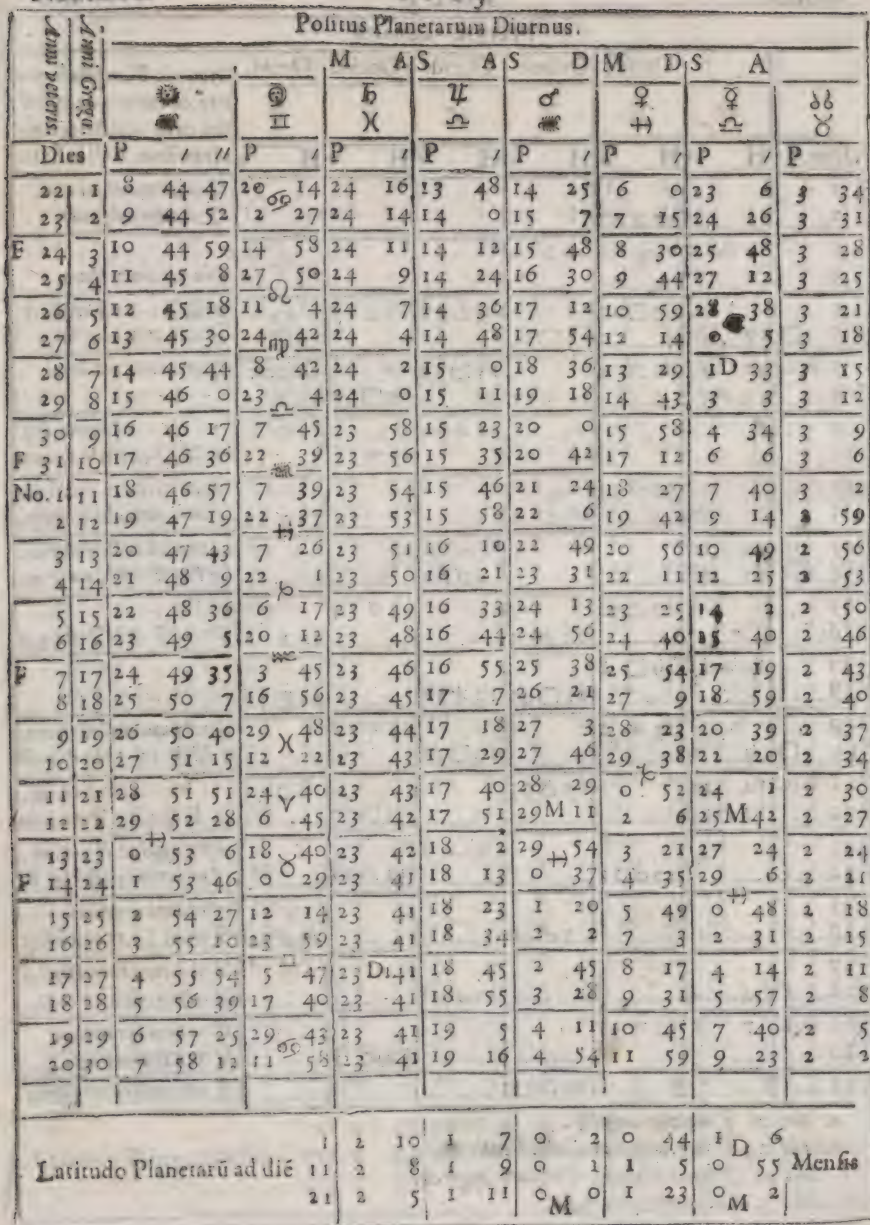 Positus Planetarum Diurnus.
Anni veteris. Anni Grego. M A S A S D M D S A
☉ ☽ ♄ ♃ ♂ ♀ ☿ ☊
♏ ♊ ♓ ♎ ♏ ♐ ♎ ♉
Dies P ′ ″ P ′ P ′ P ′ P ′ P ′ P ′ P
22 1 8 44 47 20 ♋ 14 24 16 13 48 14 25 6 0 23 6 3 34
23 2 9 44 52 2 27 24 14 14 0 15 7 7 15 24 26 3 31
F 24 3 10 44 59 14 58 24 11 14 12 15 48 8 30 25 48 3 28
25 4 11 45 8 27 ♌ 50 24 9 14 24 16 30 9 44 27 12 3 25
26 5 12 45 18 11 4 24 7 14 36 17 12 10 59 28 38 3 21
27 6 13 45 30 24 ♍ 42 24 4 14 48 17 54 12 14 0 5 3 18
28 7 14 45 44 8 42 24 2 15 0 18 36 13 29 1 D 33 3 15
29 8 15 46 0 23 ♎ 4 24 0 15 11 19 18 14 43 3 3 3 12
30 9 16 46 17 7 45 23 58 15 23 20 0 15 58 4 34 3 9
F 31 10 17 46 36 22 ♏ 39 23 56 15 35 20 42 17 12 6 6 3 6
No. 1 11 18 46 57 7 39 23 54 15 46 21 24 18 27 7 40 3 2
2 12 19 47 19 22 ♐ 37 23 53 15 58 22 6 19 42 9 14 2 59
3 13 20 47 43 7 26 23 51 16 10 22 49 20 56 10 49 2 56
4 14 21 48 9 22 ♑ 1 23 50 16 21 23 31 22 11 12 25 2 53
5 15 22 48 36 6 17 23 49 16 33 24 13 23 25 14 2 2 50
6 16 23 49 5 20 ♒ 12 23 48 16 44 24 56 24 40 15 40 2 46
F 7 17 24 49 35 3 45 23 46 16 55 25 38 25 54 17 19 2 43
8 18 25 50 7 16 56 23 45 17 7 26 21 27 9 18 59 2 40
9 19 26 50 40 29 ♓ 48 23 44 17 18 27 3 28 23 20 39 2 37
10 20 27 51 15 12 22 23 43 17 29 27 46 29 ♑ 38 22 20 2 34
11 21 28 51 51 24 ♈ 40 23 43 17 40 28 29 0 52 24 1 2 30
12 22 29 52 28 6 45 23 42 17 51 29 M 11 2 6 25 M 42 2 27
13 23 0 ♐ 53 6 18 ♉ 40 23 42 18 2 29 ♐ 54 3 21 27 24 2 24
F 14 24 1 53 46 0 29 23 41 18 13 0 37 4 35 29 6 2 21
15 25 2 54 27 12 14 23 41 18 23 1 20 5 49 0 ♐ 48 2 18
16 26 3 55 10 23 59 23 41 18 34 2 2 7 3 2 31 2 15
17 27 4 55 54 5 ♊ 47 23 Di 41 18 45 2 45 8 17 4 14 2 11
18 28 5 56 39 17 40 23 41 18 55 3 28 9 31 5 57 2 8
19 29 6 57 25 29 ♋ 43 23 41 19 5 4 11 10 45 7 40 2 5
20 30 7 58 12 11 58 23 41 19 16 4 54 11 59 9 23 2 2
1 2 10 1 7 0 2 0 44 1 D 6
Latitudo Planetarũ ad diẽ 11 2 8 1 9 0 1 1 5 0 55 Mensis
21 2 5 1 11 0 M 0 1 23 0 M 2